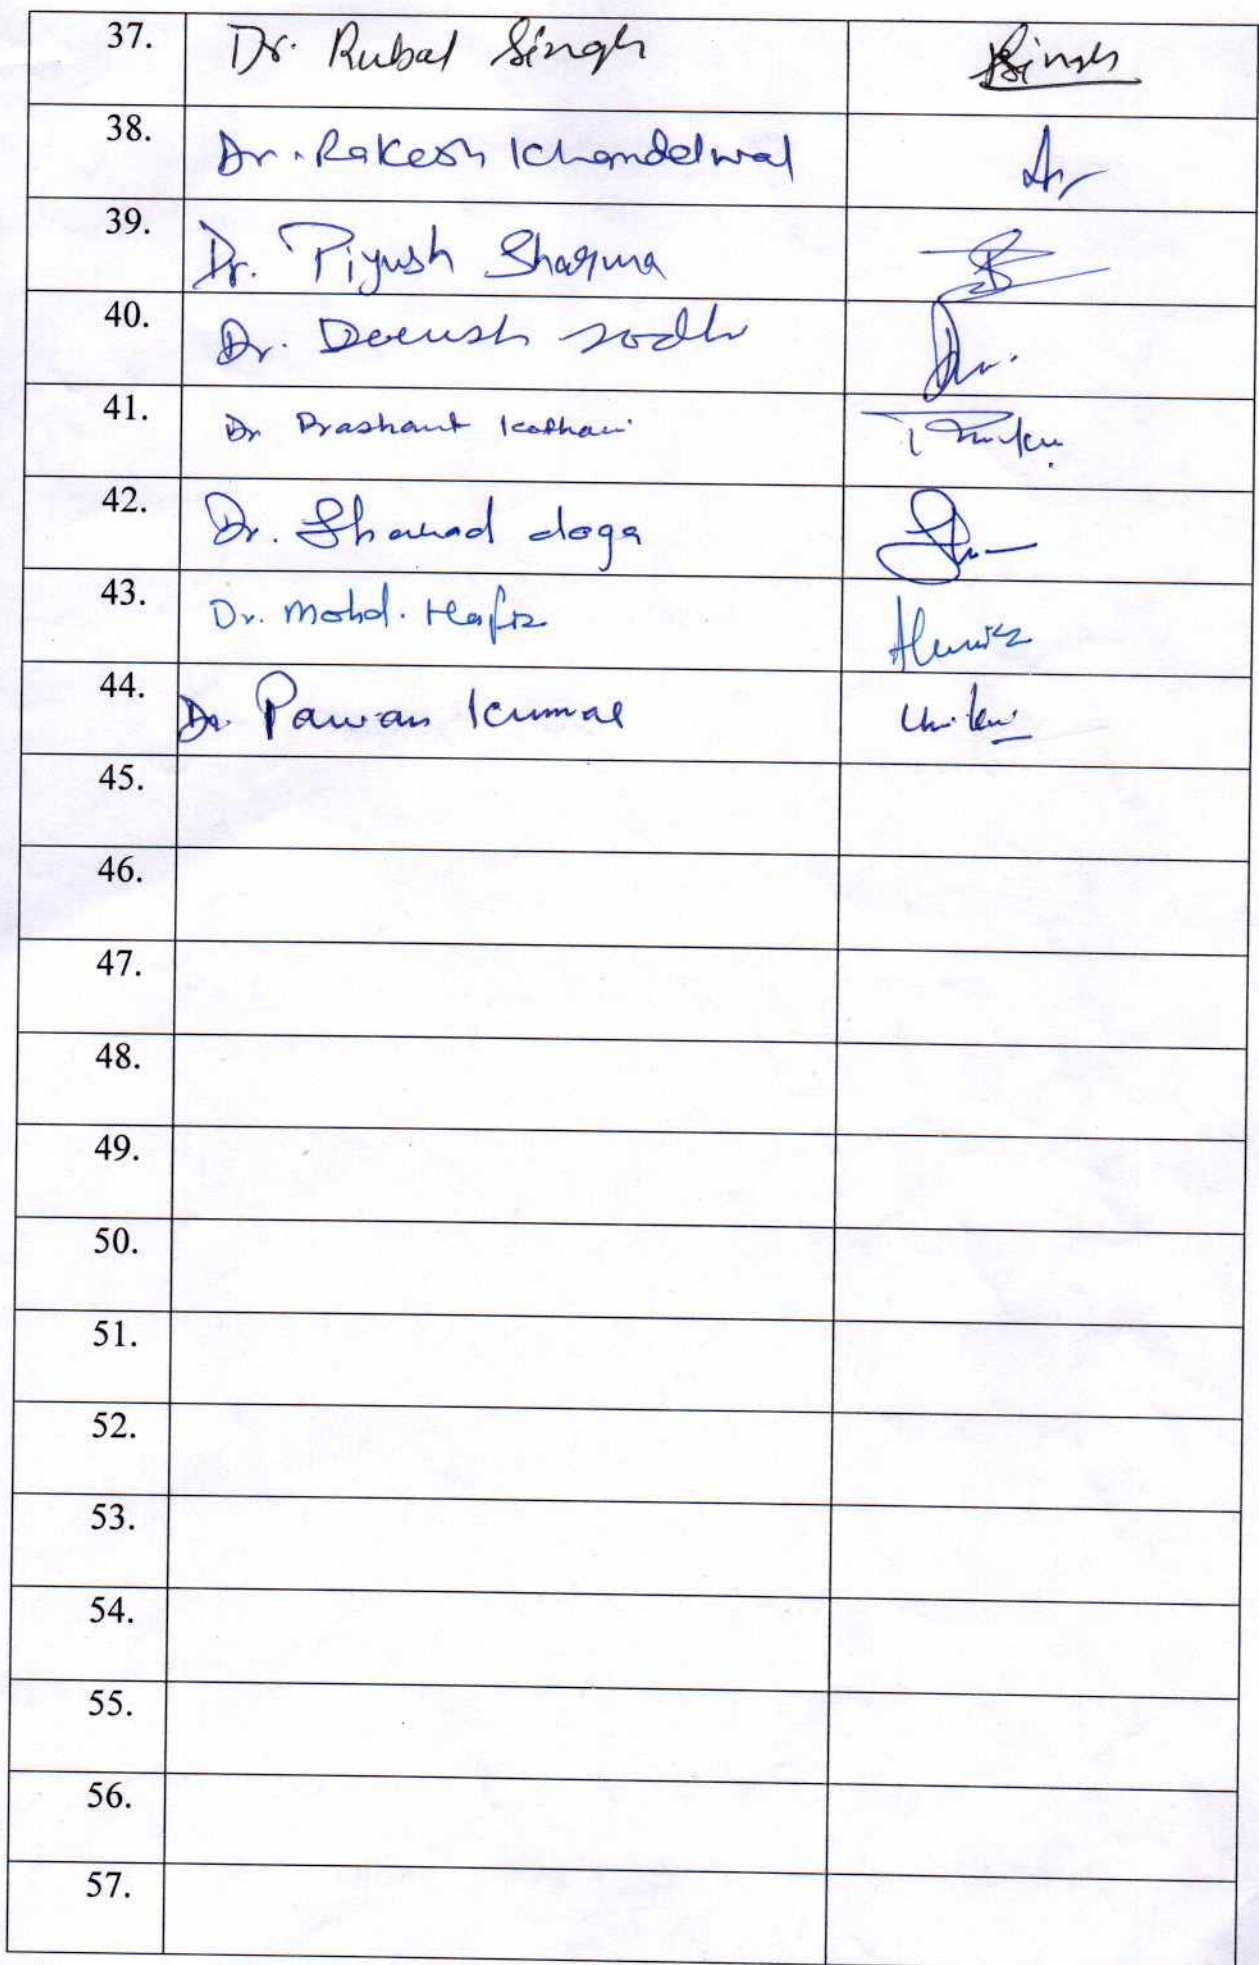 37. Dr. Rubal Singh RSingh
38. Dr. Rakesh Khandelwal
39. Dr. Piyush Sharma
40. Dr.
41. Dr Prashant Kothari
42. Dr. Sharad doga
43. Dr. Mohd. Hafiz
44. Dr. Pawan Kumar
45.
46.
47.
48.
49.
50.
51.
52.
53.
54.
55.
56.
57.